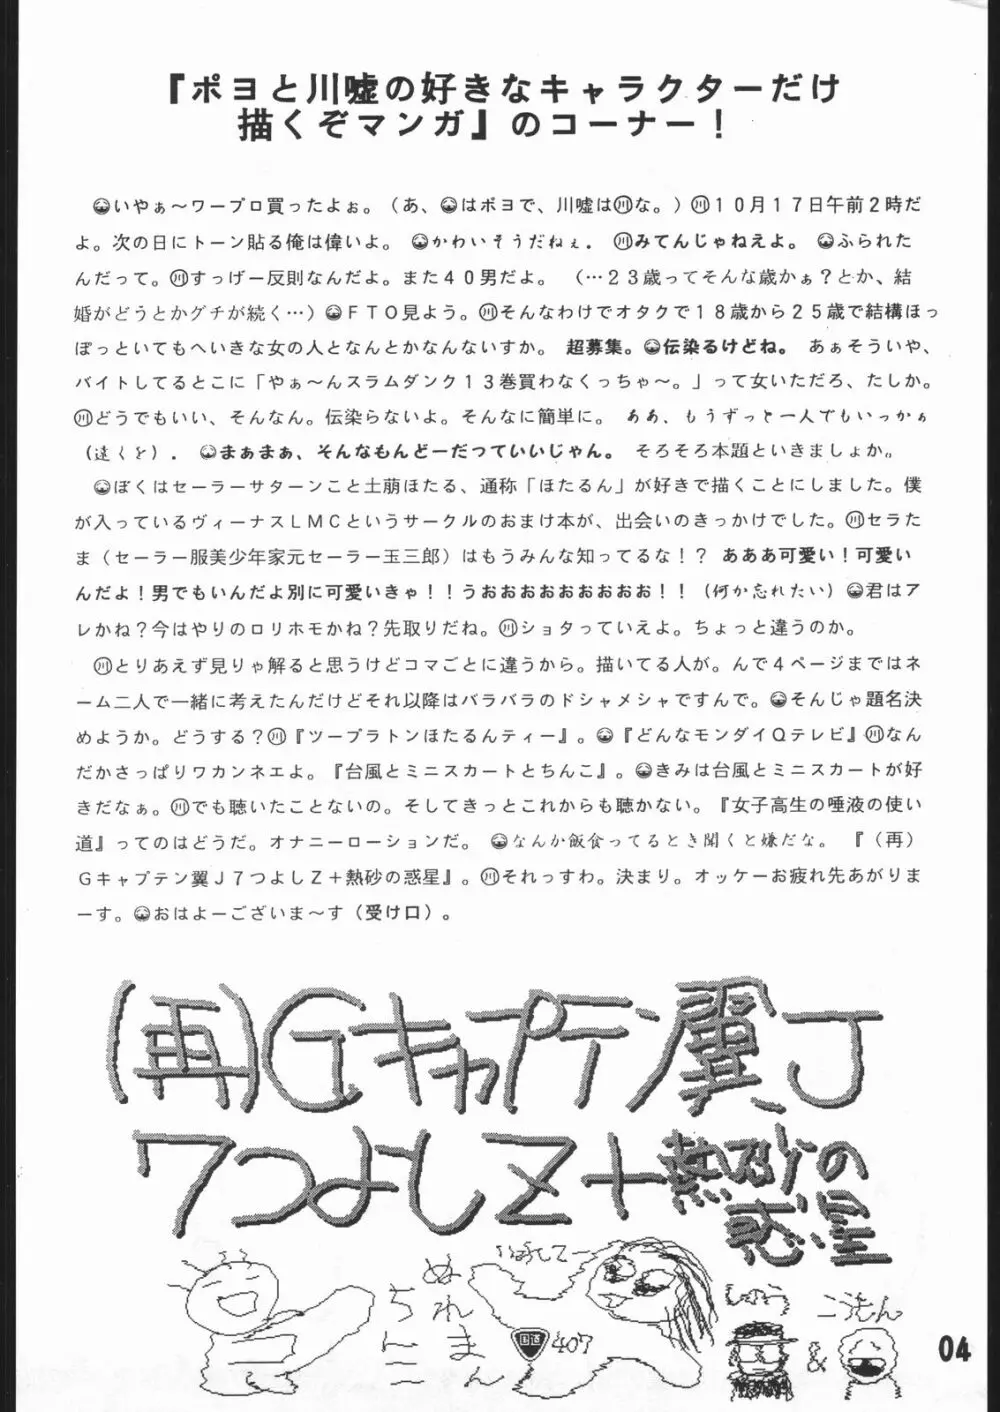 『ポヨと川嘘の好きなキャラクターだけ
描くぞマンガ』のコーナー！
いやぁ～ワープロ買ったよぉ。（あ、はポヨで、川嘘は㊋な。）10月17日午前2時だ
よ。次の日にトーン貼る俺は偉いよ。かわいそうだねぇ．川みてんじゃねえよ。ふられた
んだって。川すっげー反則なんだよ。また40男だよ。（…23歳ってそんな歳かぁ？とか、結
婚がどうとかグチが続く…）FTO見よう。川そんなわけでオタクで18歳から25歳で結構ほっ
ぽっといてもへいきな女の人となんとかなんないすか。超募集。伝染るけどね。あぁそういや、
バイトしてるとこに「やぁ～んスラムダンク13巻買わなくっちゃ～。」って女いただろ、たしか。
川どうでもいい、そんなん。伝染らないよ。そんなに簡単に。ああ、もうずっと一人でもいっかぁ
（遠くを）．まぁまぁ、そんなもんどーだっていいじゃん。そろそろ本題といきましょか。
ぼくはセーラーサターンこと土萠ほたる、通称「ほたるん」が好きで描くことにしました。僕
が入っているヴィーナスLMCというサークルのおまけ本が、出会いのきっかけでした。川セラた
ま（セーラー服美少年家元セーラー玉三郎）はもうみんな知ってるな！？ああああ可愛い！可愛い
んだよ！男でもいんだよ別に可愛いきゃ！！うおおおおおおおおお！！（何か忘れたい）君はア
レかね？今はやりのロリホモかね？先取りだね。川ショタっていえよ。ちょっと違うのか。
川とりあえず見りゃ解ると思うけどコマごとに違うから。描いてる人が。んで4ページまではネ
ーム二人で一緒に考えたんだけどそれ以降はバラバラのドシャメシャですんで。そんじゃ題名決
めようか。どうする？川『ツープラトンほたるんティー』。『どんなモンダイQテレビ』川なん
だかさっぱりワカンネエよ。『台風とミニスカートとちんこ』。きみは台風とミニスカートが好
きだなぁ。川でも聴いたことないの。そしてきっとこれからも聴かない。『女子高生の唾液の使い
道』ってのはどうだ。オナニーローションだ。なんか飯食ってるとき聞くと嫌だな。『（再）
Gキャプテン翼J7つよしZ＋熱砂の惑星』。川それっすわ。決まり。オッケーお疲れ先あがりま
ーす。おはよーございま～す（受け口）。
(再)Gキャプテン翼J
7つよしZ+熱砂の
惑星
ぬれまん
ちんこ
国道
407
じゅう
&
こうもん
04